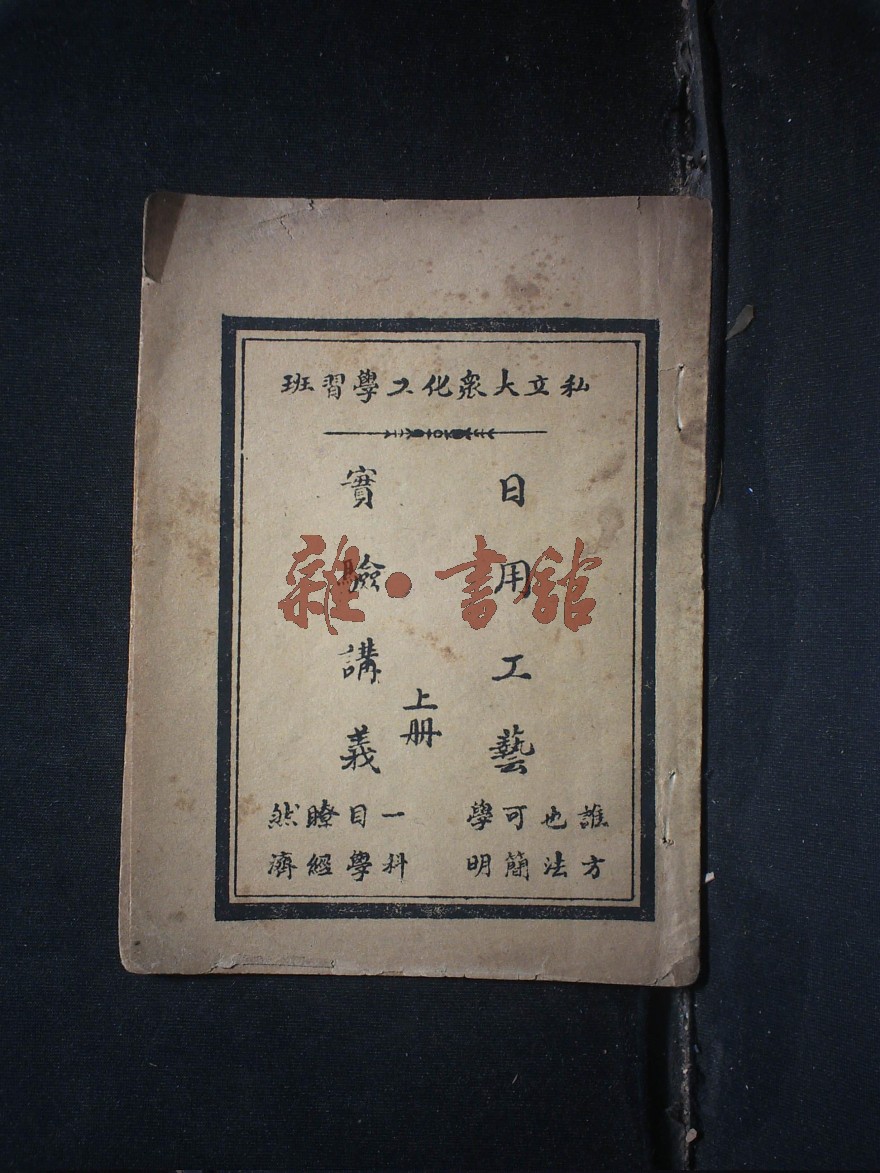 私立大衆化工學習班
日用工藝
實驗講義
上册
誰也可學 一目瞭然
方法簡明 科學經濟
雜·書舘